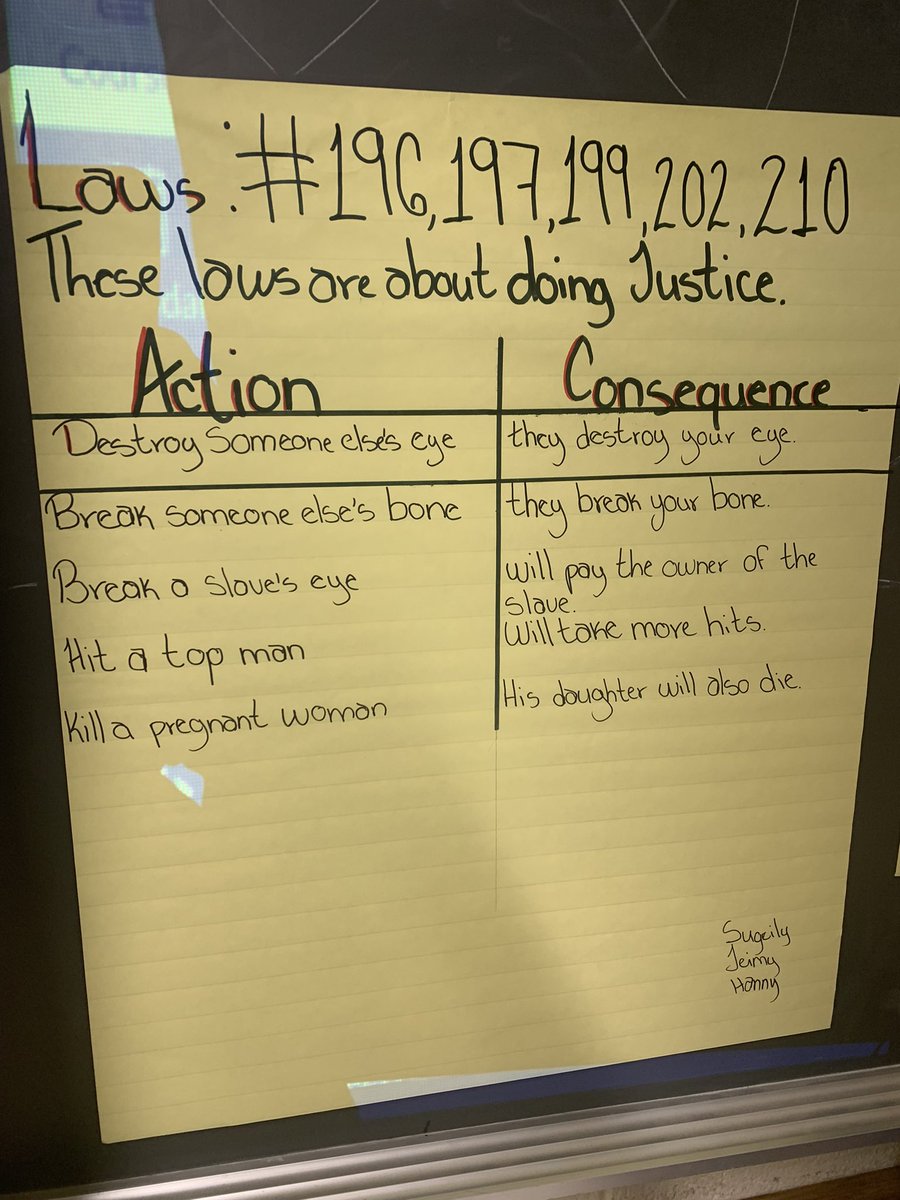 Laws: #196,197,199,202,210
These laws are about doing Justice.
Action
Consequence
Destroy Someone else's eye
they destroy your eye.
Break someone else's bone
they break your bone.
Break a slave's eye
will pay the owner of the
slave.
Hit a top man
Will take more hits.
Kill a pregnant woman
His daughter will also die.
Sugeily
Jeimy
Hanny